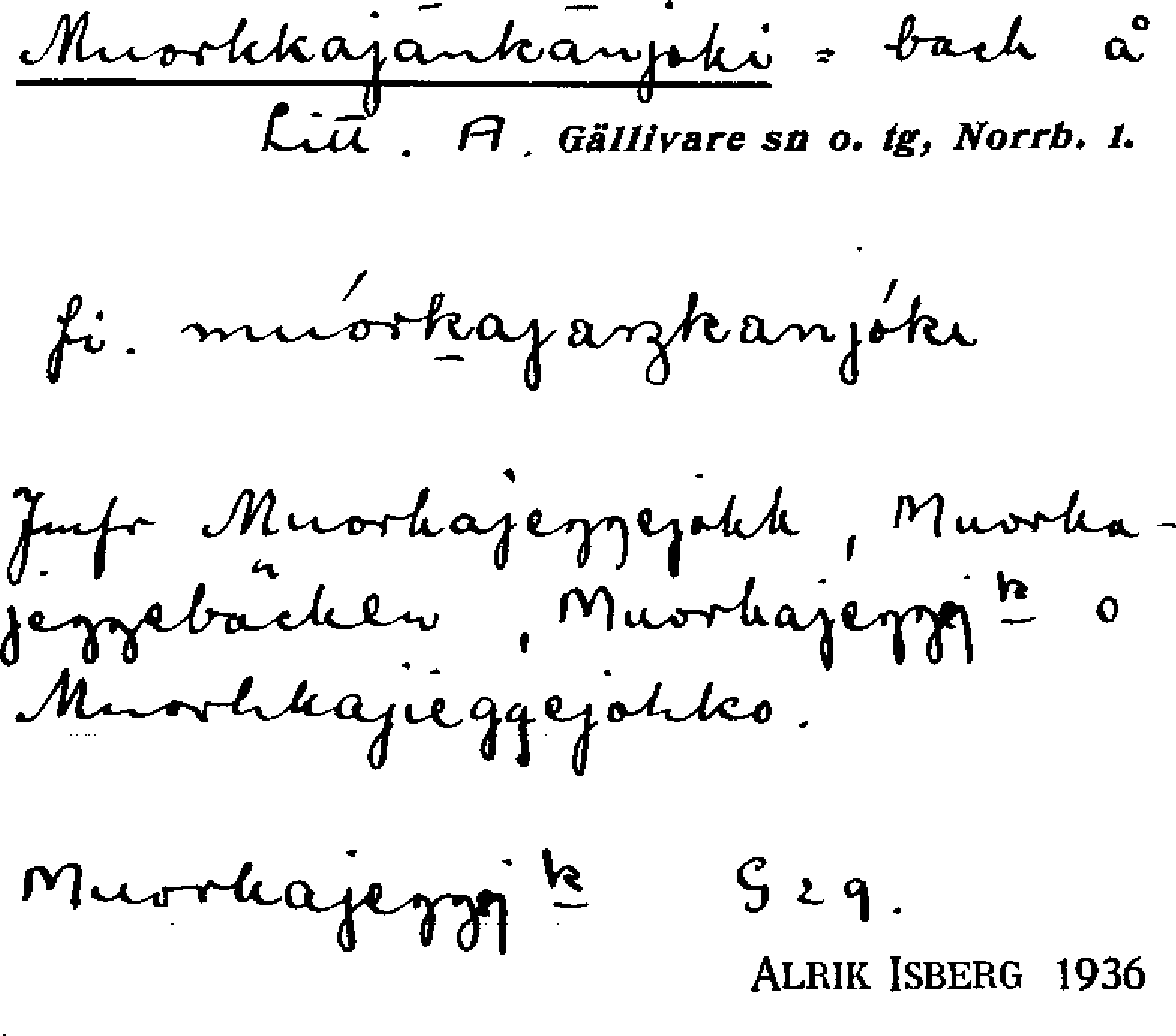 Muorkkajänkänjoki = back å
Litt. A. Gällivare sn o. tg, Norrb. l.
fi. muórkajaŋkanjóki
Jmfr Muorkajeggejokk, Muorka-
jeggebäcken, Muorkajeggejk o
Muorkkajieggejokko.
Muorkajeggejk G 29.
ALRIK ISBERG 1936